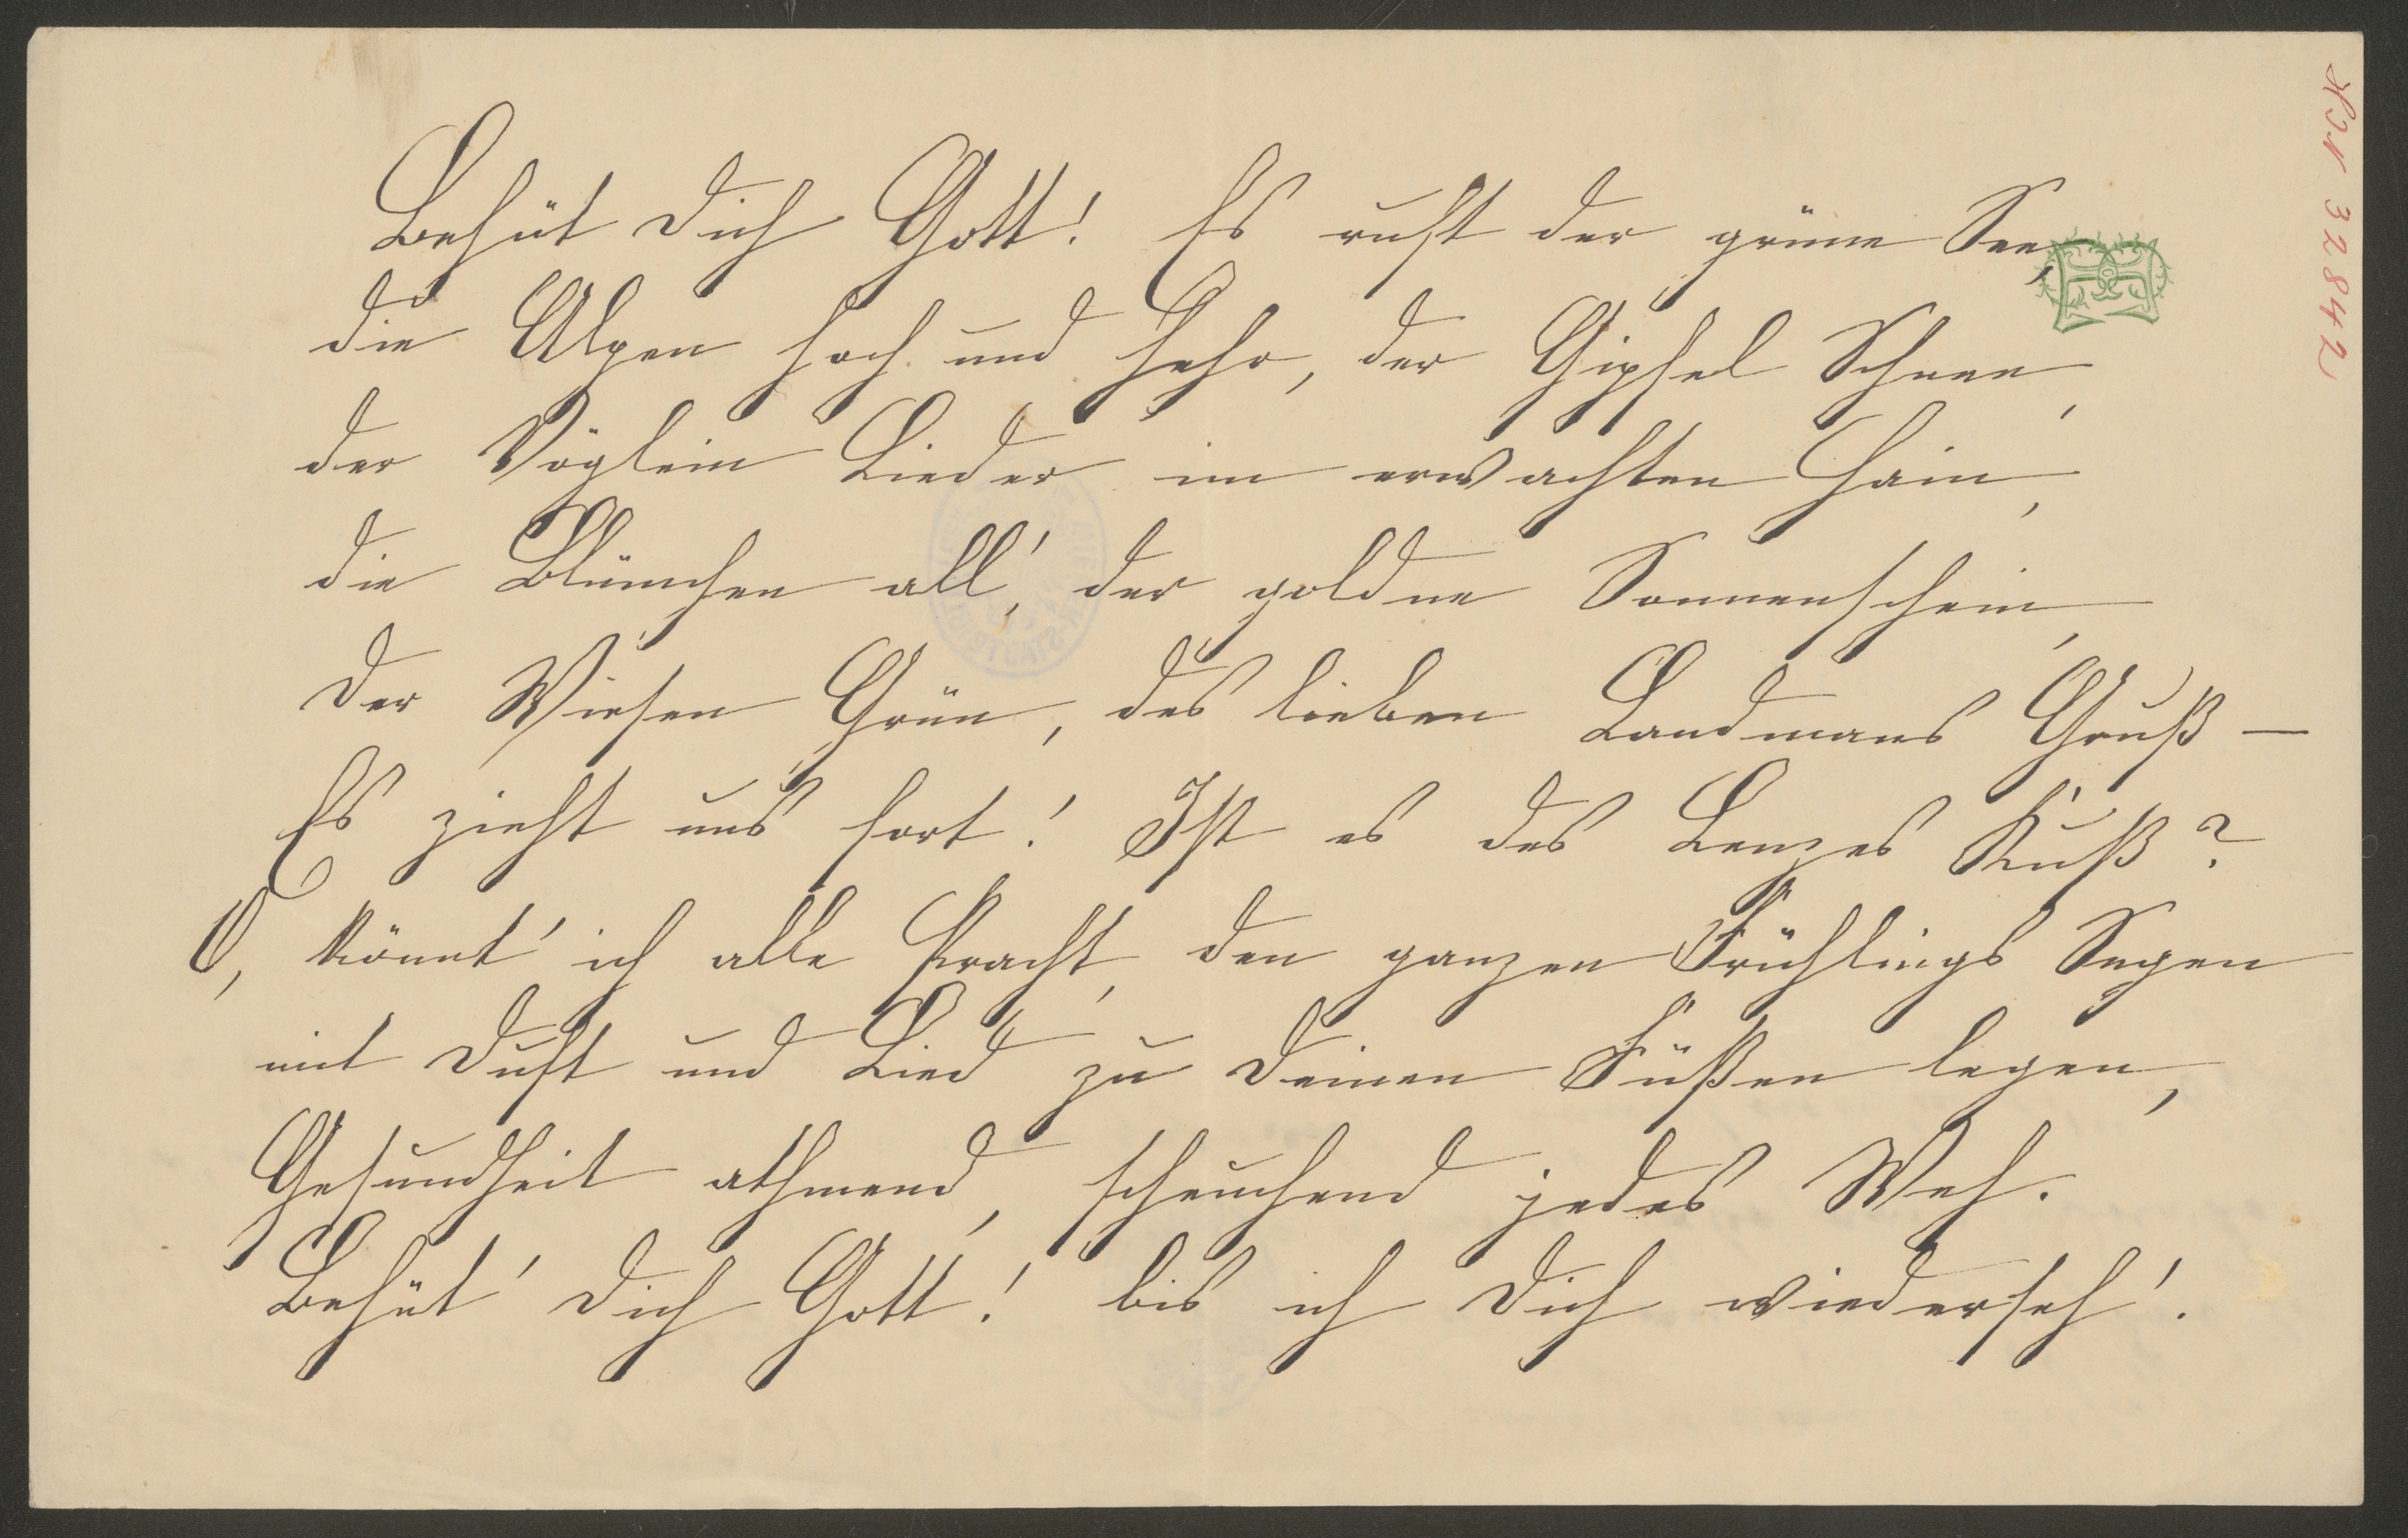 Behüt Dich Gott! Es ruft der grüne See,
die Alpen hoch und hehr, der Gipfel Schnee,
der Vöglein Lieder im erwachten Hain,
die Blümchen all', der goldne Sonnenschein,
Der Wiesen Grün, des lieben Landmans Gruß —
Es zieht uns fort! Ist es des Lenzes Kuß?
O, könnt' ich alle Pracht, den ganzen Frühlings Segen
mit Duft und Lied zu Deinen Füßen legen,
Gesundheit athmend, scheuchend jedes Weh.
Behüt' Dich Gott! bis ich Dich wiederseh'.
HIN 32842